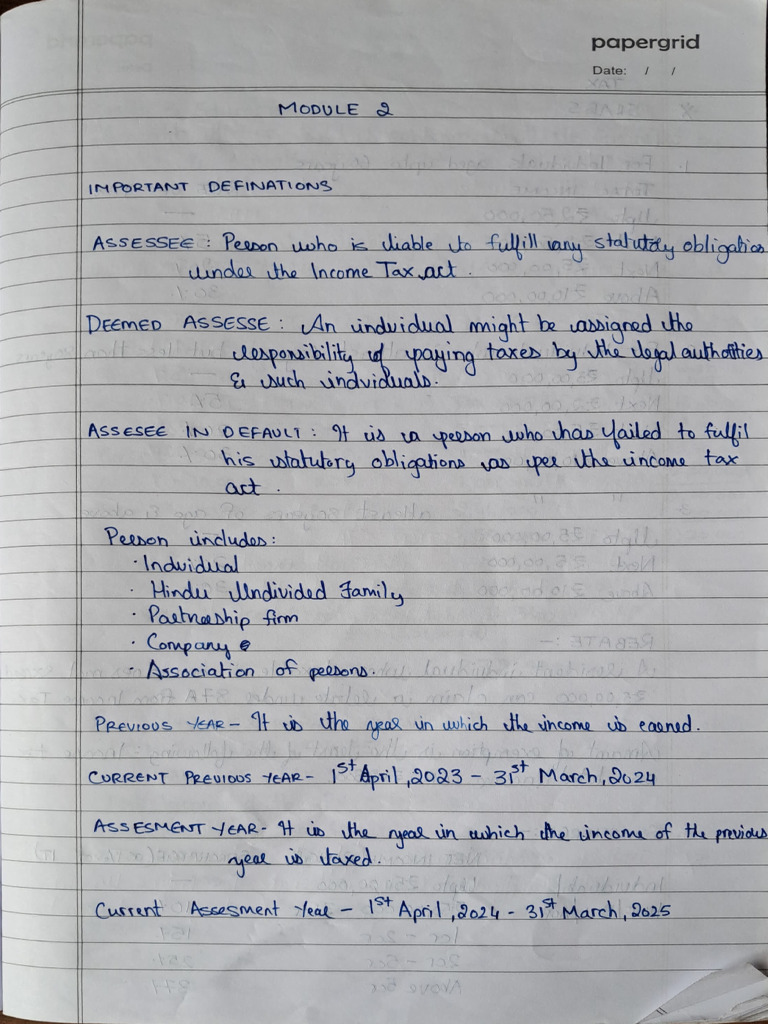 papergrid
Date: / /
MODULE 2
IMPORTANT DEFINATIONS
ASSESSEE : Person who is liable to fulfill any statutory obligation
under the Income Tax act .
DEEMED ASSESSE : An individual might be assigned the
responsibility of paying taxes by the legal authorities
& such individuals.
ASSESEE IN DEFAULT : It is a person who has failed to fulfil
his statutory obligations as per the income tax
act .
Person includes:
· Individual
· Hindu Undivided Family
· Partnership firm
· Company
· Association of persons.
PREVIOUS YEAR – It is the year in which the income is earned.
CURRENT PREVIOUS YEAR – 1st April, 2023 – 31st March, 2024
ASSESMENT YEAR – It is the year in which the income of the previous
year is taxed.
Current Assesment Year – 1st April, 2024 – 31st March, 2025